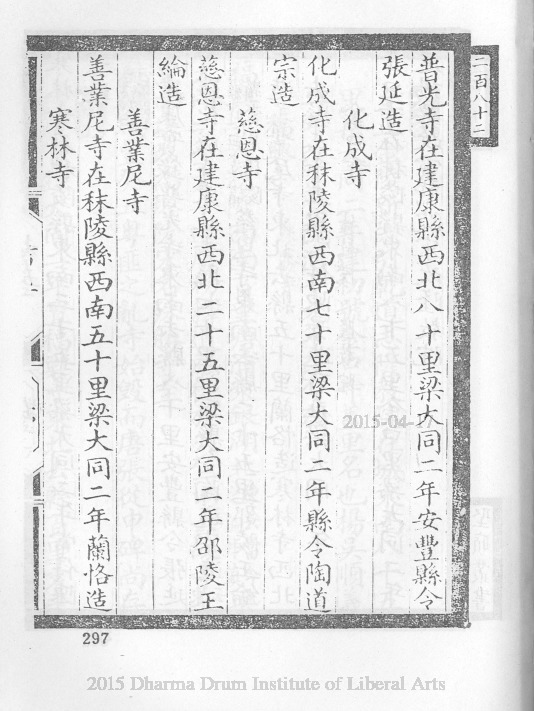 二百八十二
普光寺在建康縣西北八十里梁大同二年安豐縣令
張延造
化成寺
化成寺在秣陵縣西南七十里梁大同二年縣令陶道
宗造
慈恩寺
慈恩寺在建康縣西北二十五里梁大同二年邵陵王
綸造
善業尼寺
善業尼寺在秣陵縣西南五十里梁大同二年蘭恪造
寒林寺
2015-04-17
297
2015 Dharma Drum Institute of Liberal Arts